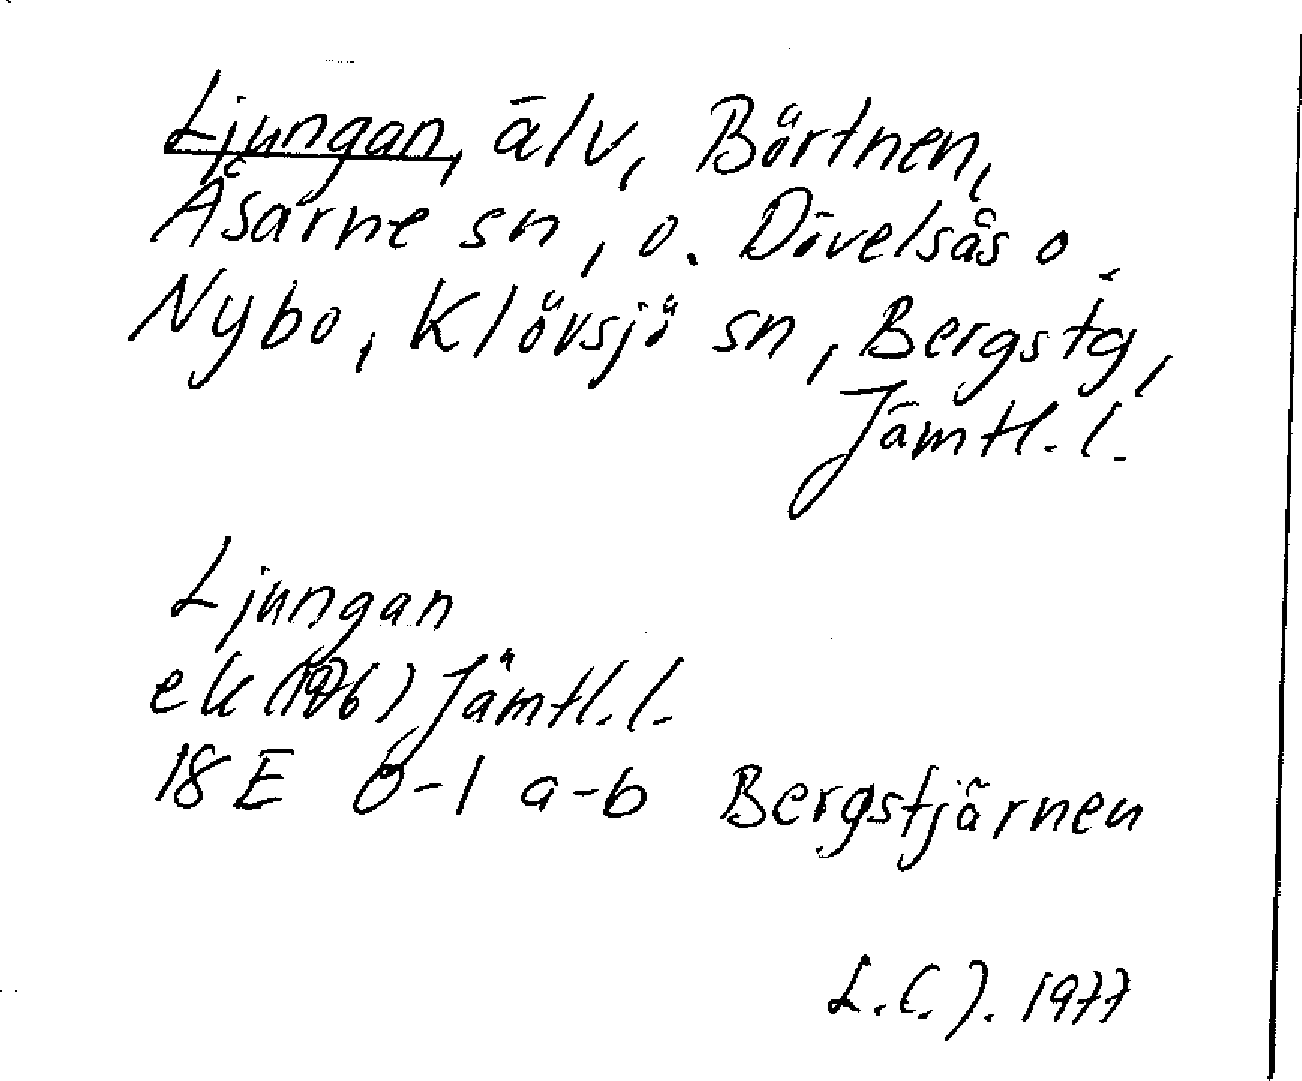 Ljungan, älv, Börtnen,
Åsarne sn, o. Dövelsås o.
Nybo, Klövsjö sn, Bergstg,
Jämtl. l.
Ljungan
ek (1976) Jämtl. l.
18 E 0-1 a-b Bergstjärnen
L.C.J. 1977